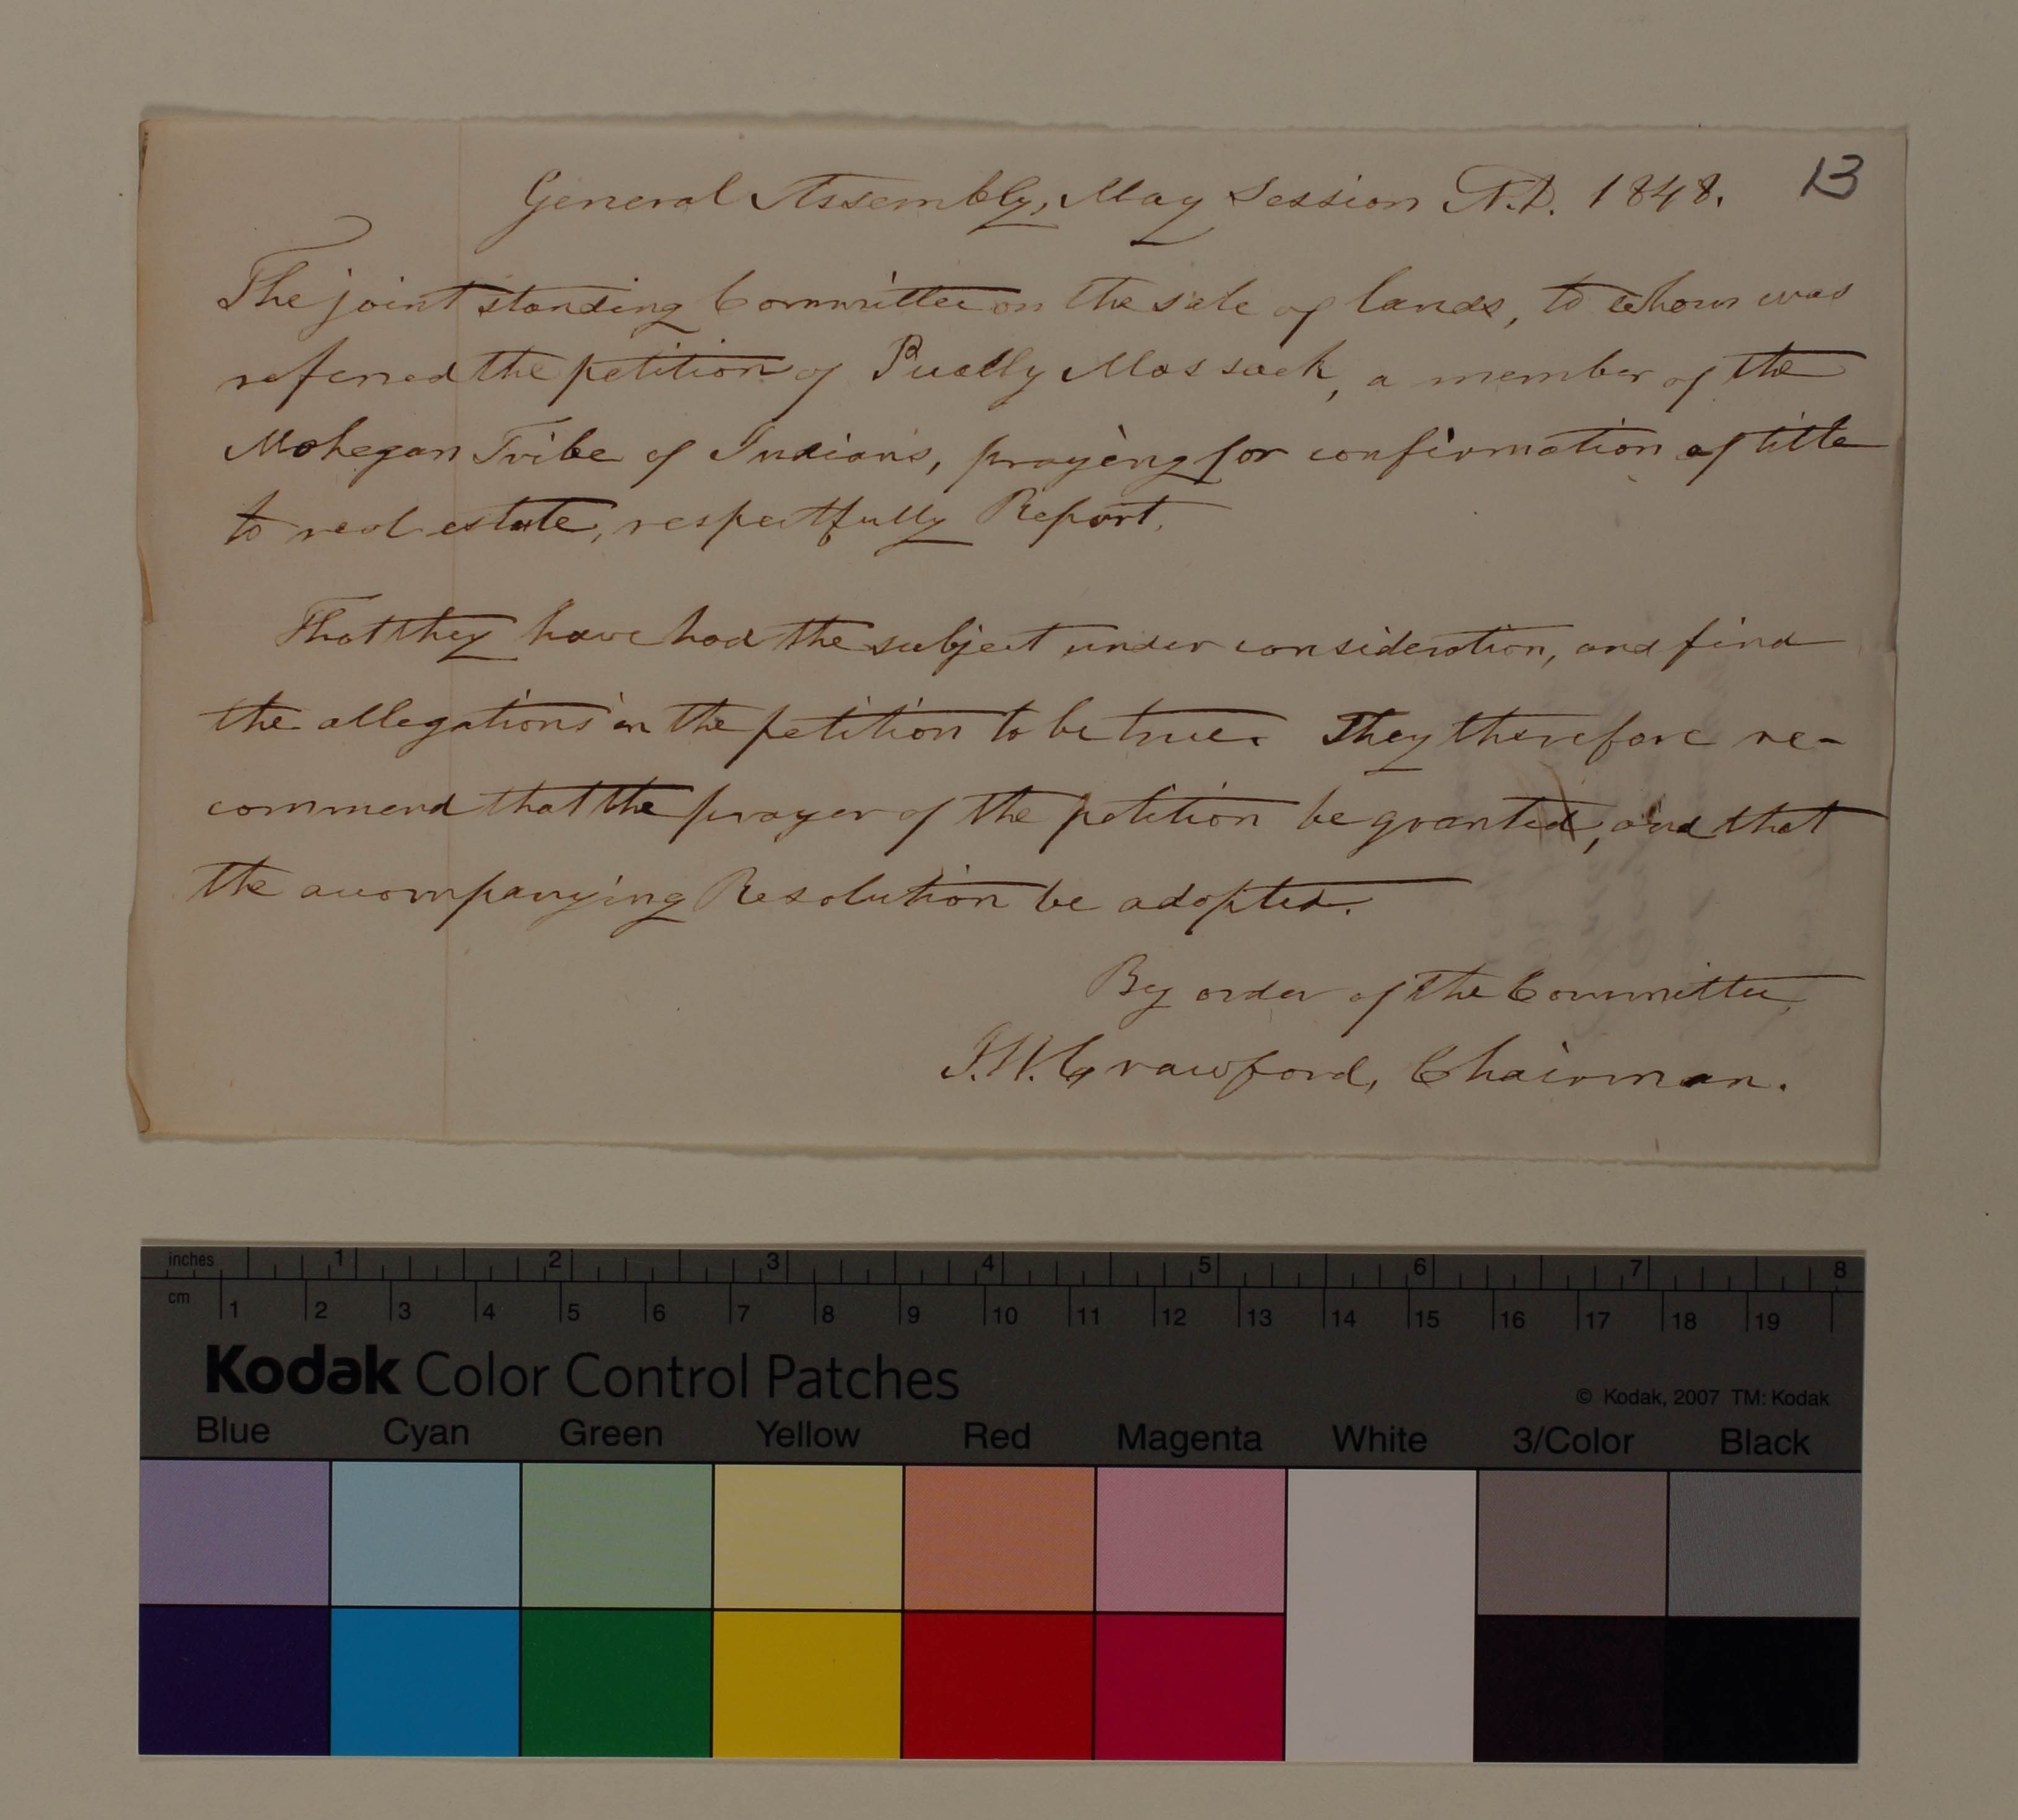 General Assembly, May Session A.D. 1848. 13
The joint standing Committee on the sale of lands, to whom was
referred the petition of Mossuck, a member of the
Mohegan Tribe of Indians, praying for confirmation of title
to real estate, respectfully Report,
That they have had the subject under consideration, and find
the allegations in the petition to be true. They therefore re-
commend that the prayer of the petition be granted, and that
the accompanying Resolution be adopted.
By order of the Committee,
J.W. Crawford, Chairman.
inches 1 2 3 4 5 6 7 8
cm 1 2 3 4 5 6 7 8 9 10 11 12 13 14 15 16 17 18 19
Kodak Color Control Patches
© Kodak, 2007 TM: Kodak
Blue Cyan Green Yellow Red Magenta White 3/Color Black